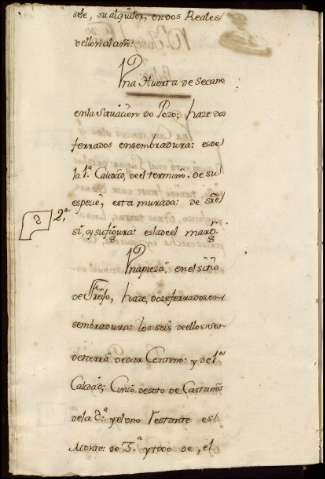 sele, su alquiler, en dos Reales
vellon al añ:
Vna Huerta de Secano
en la Situacion do Pozo; haze dos
ferrados en sembradura: es de
la 1ª Calidad, de el termino. de su
especie, esta murada: de
si, y su figura: es la de el marg.
8 2.ª
Vna pieza, en el sitio
de haze, doze ferrados en
sembradura: los seis de ellos son
de tierra de dar Centeno: y de 1ª
Calidad; Cinco, de soto de Castaños
de la 2.ª y el vno Restante es
Monte: de 3.ª y todo de, el